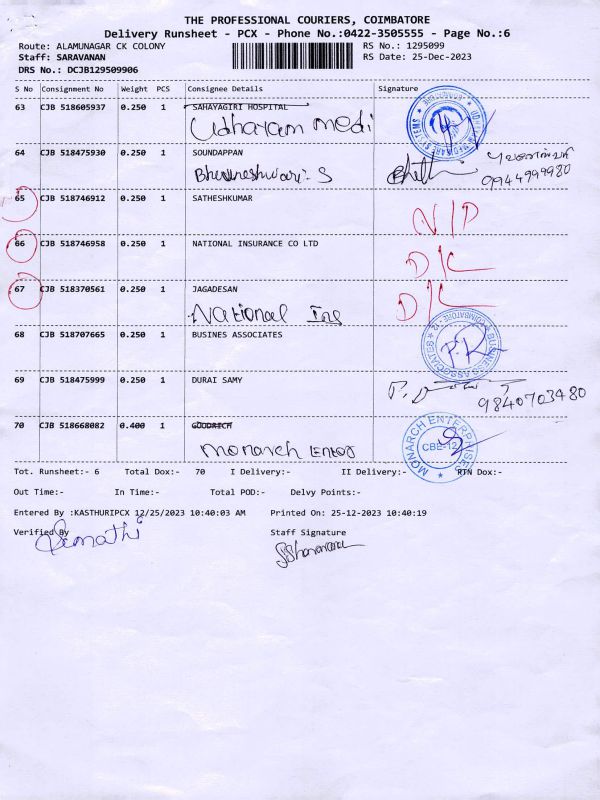 THE PROFESSIONAL COURIERS, COIMBATORE
Delivery Runsheet - PCX - Phone No.:0422-3505555 - Page No.:6
Route: ALAMUNAGAR CK COLONY RS No.: 1295099
Staff: SARAVANAN RS Date: 25-Dec-2023
DRS No.: DCJB129509906
S No Consignment No Weight PCS Consignee Details Signature
63 CJB 518605937 0.250 1 SAHAYAGIRI HOSPITAL
Udhayam medi
64 CJB 518475930 0.250 1 SOUNDAPPAN
Bhuvaneshwari. S 9944999980
65 CJB 518746912 0.250 1 SATHESHKUMAR
N/P
66 CJB 518746958 0.250 1 NATIONAL INSURANCE CO LTD
D/L
67 CJB 518370561 0.250 1 JAGADESAN D/L
National Ins
68 CJB 518707665 0.250 1 BUSINES ASSOCIATES
BUSINESS ASSOCIATES COIMBATORE - 12
69 CJB 518475999 0.250 1 DURAI SAMY
9840703480
70 CJB 518668082 0.400 1 GOODRECH
Monarch Enter
MONARCH ENTERPRISES CBE-12
Tot. Runsheet:- 6 Total Dox:- 70 I Delivery:- II Delivery:- RTN Dox:-
Out Time:- In Time:- Total POD:- Delvy Points:-
Entered By :KASTHURIPCX 12/25/2023 10:40:03 AM Printed On: 25-12-2023 10:40:19
Verified By Staff Signature